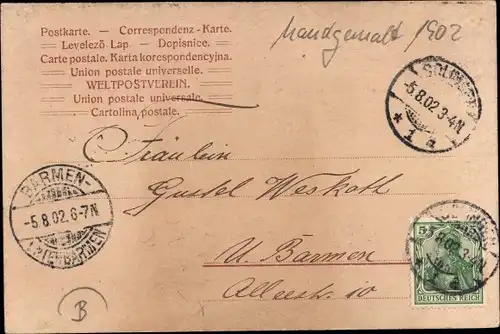 Postkarte. — Correspondenz-Karte.
Levelező-Lap. — Dopisnice.
Carte postale. Karta korespondencyjna.
Union postale universelle.
WELTPOSTVEREIN.
Union postale universale.
Cartolina postale.
Handgemalt 1902
SOLINGEN
-5.8.02.3-4N
* 1 d
Fräulein
Gustel Weskoth
BARMEN-
-5.8.02.6-7N
U. Barmen
Alleestr. 10
5
DEUTSCHES REICH
B